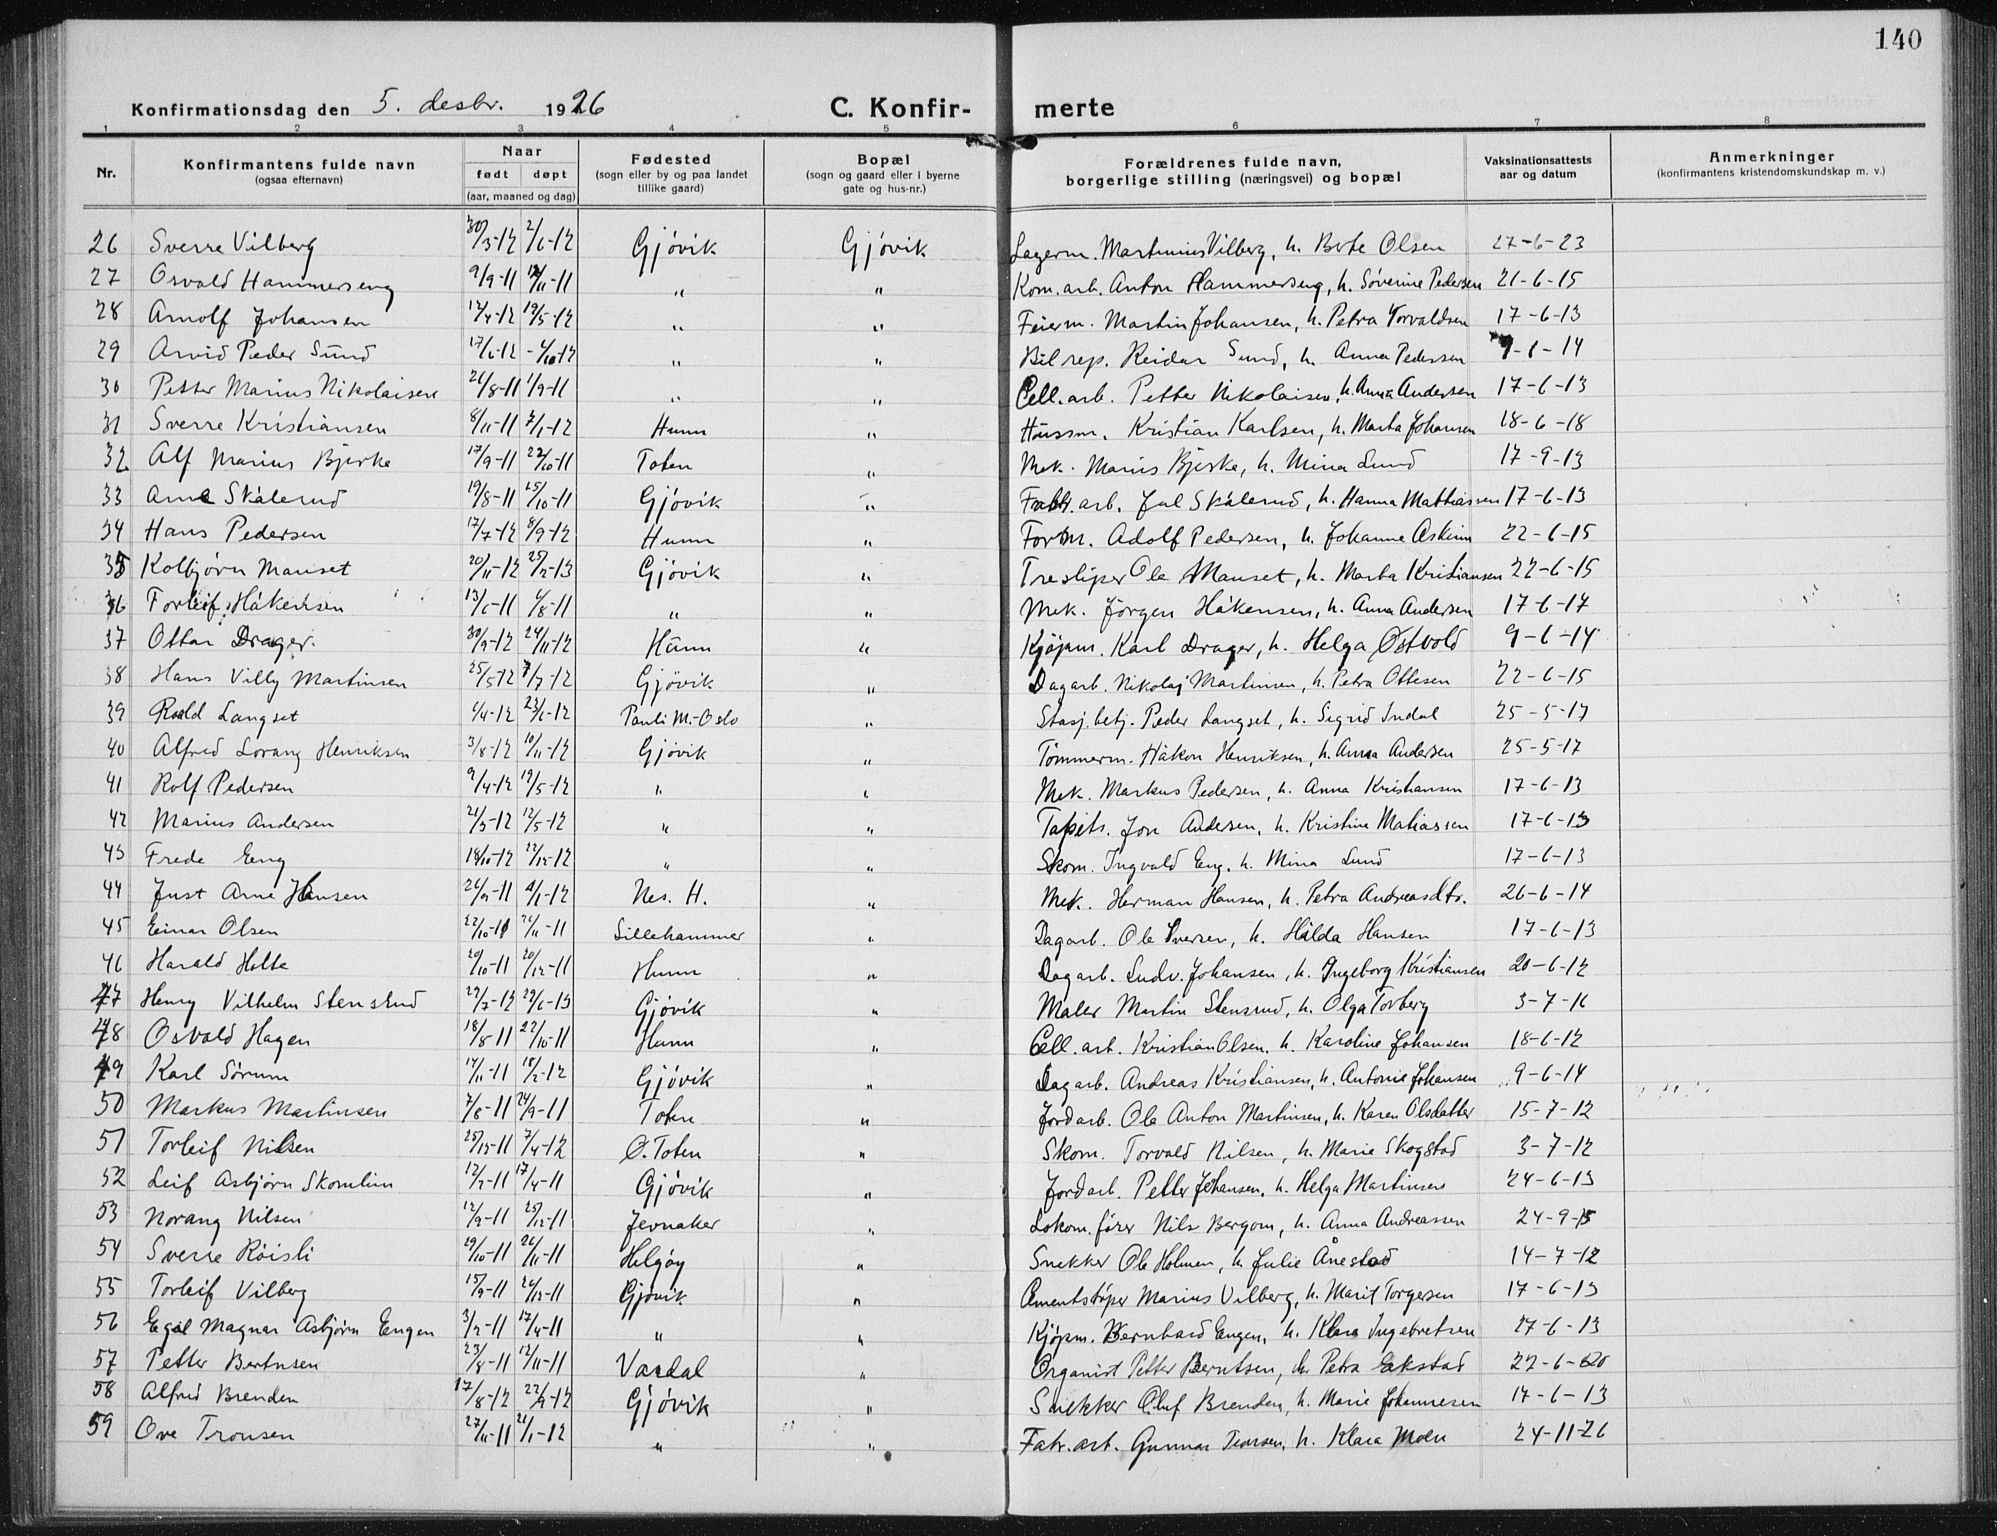 140
Konfirmationsdag den 5. desbr. 1926 C. Konfir- merte
1 2 3 4 5 6 7 8
Nr. Konfirmantens fulde navn (ogsaa efternavn) Naar født døpt (aar, maaned og dag) Fødested (sogn eller by og paa landet tillike gaard) Bopæl (sogn og gaard eller i byerne gate og hus-nr.) Forældrenes fulde navn, borgerlige stilling (næringsvei) og bopæl Vaksinationsattests aar og datum Anmerkninger (konfirmantens kristendomskundskap m. v.)
26 Sverre Vilberg 30/3-12 2/6-12 Gjövik Gjövik Lagerm. Martinius Vilberg, h. Berte Olsen 27-6-23
27 Osvald Hammerseng 9/9-11 12/11-11 " " Kom. arb. Anton Hammerseng, h. Söverine Pedersen 21-6-15
28 Arnolf Johansen 12/4-12 19/5-12 " " Feierm. Martin Johansen, h. Petra Torvaldsen 17-6-13
29 Arvid Peder Sund 17/6-12 -/10-12 " " Bilrep. Reidar Sund, h. Anna Pedersen 9-6-14
30 Petter Marius Nikolaisen 26/8-11 1/9-11 " " Cell. arb. Petter Nikolaisen, h. Anna Andersen 17-6-13
31 Sverre Kristiansen 8/11-11 7/1-12 Hunn " Hussm. Kristian Karlsen, h. Marta Johansen 18-6-18
32 Alf Marius Bjerke 17/9-11 22/10-11 Toten " Mek. Marius Bjerke, h. Mina Lund 17-9-13
33 Arne Skålerud 19/8-11 15/10-11 Gjövik " Fabr. arb. Jul Skålerud, h. Hanna Mathiassen 17-6-13
34 Hans Pedersen 17/7-12 8/9-12 Hunn " Form. Adolf Pedersen, h. Johanne Askim 22-6-15
35 Kolbjørn Manset 20/11-12 25/2-13 Gjövik " Tresliper Ole Manset, h. Marta Kristiansen 22-6-15
36 Torleif Håkensen 13/6-11 /8-11 " " Mek. Jörgen Håkensen, h. Anna Andersen 17-6-17
37 Ottar Drager. 30/9-12 24/11-12 Hunn " Kjöpm. Karl Drager, h. Helga Östvold 9-6-14
38 Hans Villy Martinsen 25/5-12 7/7-12 Gjövik " Dagarb. Nikolaj Martinsen, h. Petra Ottesen 22-6-15
39 Roald Langset 6/4-12 23/6-12 Pauli M.-Oslo " Stasj. betj. Peder Langset, h. Sigrid Indal 25-5-17
40 Alfred Lorang Henriksen 3/8-12 10/11-12 Gjövik " Tömmerm. Håkon Henriksen, h. Anna Andersen 25-5-17
41 Rolf Pedersen 9/4-12 19/5-12 " " Mek. Markus Pedersen, h. Anna Kristiansen 17-6-13
42 Marius Andersen 21/3-12 12/5-12 " " Tapets. Jon Andersen, h. Kristine Matiassen 17-6-13
43 Frede Eng 18/10-12 22/12-12 " " Skom. Ingvald Eng. h. Mina Lund 17-6-13
44 Just Arne Hansen 26/9-11 4/1-12 Nes. H. " Mek. Herman Hansen, h. Petra Andreasdtr. 26-6-14
45 Einar Olsen 22/10-11 26/11-11 Lillehammer " Dagarb. Ole Iversen, h. Hilda Hansen 17-6-13
46 Harald Holte 20/10-11 20/12-11 Hunn " Dagarb. Ludv. Johansen, h. Ingeborg Kristiansen 20-6-12
47 Henry Vilhelm Stensrud 29/7-12 29/6-13 Gjövik " Maler Martin Stensrud, h. Olga Torberg 3-7-16
48 Osvald Hagen 18/8-11 22/10-11 Hunn " Cell. arb. Kristian Olsen, h. Karoline Johansen 18-6-12
49 Karl Sörum 14/11-11 18/2-12 Gjövik " Dagarb. Andreas Kristiansen, h. Antonie Johansen 9-6-14
50 Markus Martinsen 7/8-11 24/9-11 Toten " Jordarb. Ole Anton Martinsen, h. Karen Olsdatter 15-7-12
51 Torleif Nilsen 25/12-11 7/4-12 Ö. Toten " Skom. Torvald Nilsen, h. Marie Skogstad 3-7-12
52 Leif Asbjørn Skomlim 12/2-11 17/4-11 Gjövik " Jordarb. Petter Johansen, h. Helga Martinsen 24-6-13
53 Norang Nilsen 12/9-11 25/12-11 Jevnaker " Lokom. förer Nils Bergom, h. Anna Andreassen 24-9-15
54 Sverre Röisli 29/10-11 26/11-11 Helgöy " Snekker Ole Holmen, h. Julie Ånestad 14-7-12
55 Torleif Vilberg 15/9-11 26/12-11 Gjövik " Cementstöper Marius Vilberg, h. Marit Torgersen 17-6-13
56 Egil Magnar Asbjörn Engen 3/2-11 17/4-11 " " Kjöpm. Bernhard Engen, h. Klara Ingebretsen 27-6-13
57 Petter Berntsen 23/8-11 12/11-11 Vardal " Organist Petter Berntsen, h. Petra Eakstad 22-6-20
58 Alfred Brenden 17/8-12 22/9-12 Gjövik " Snekker Oluf Brenden, h. Marie Johannesen 17-6-13
59 Ove Tronsen 27/11-11 21/1-12 " " Fabr. arb. Gunnar Tronsen, h. Klara Moen 24-11-26